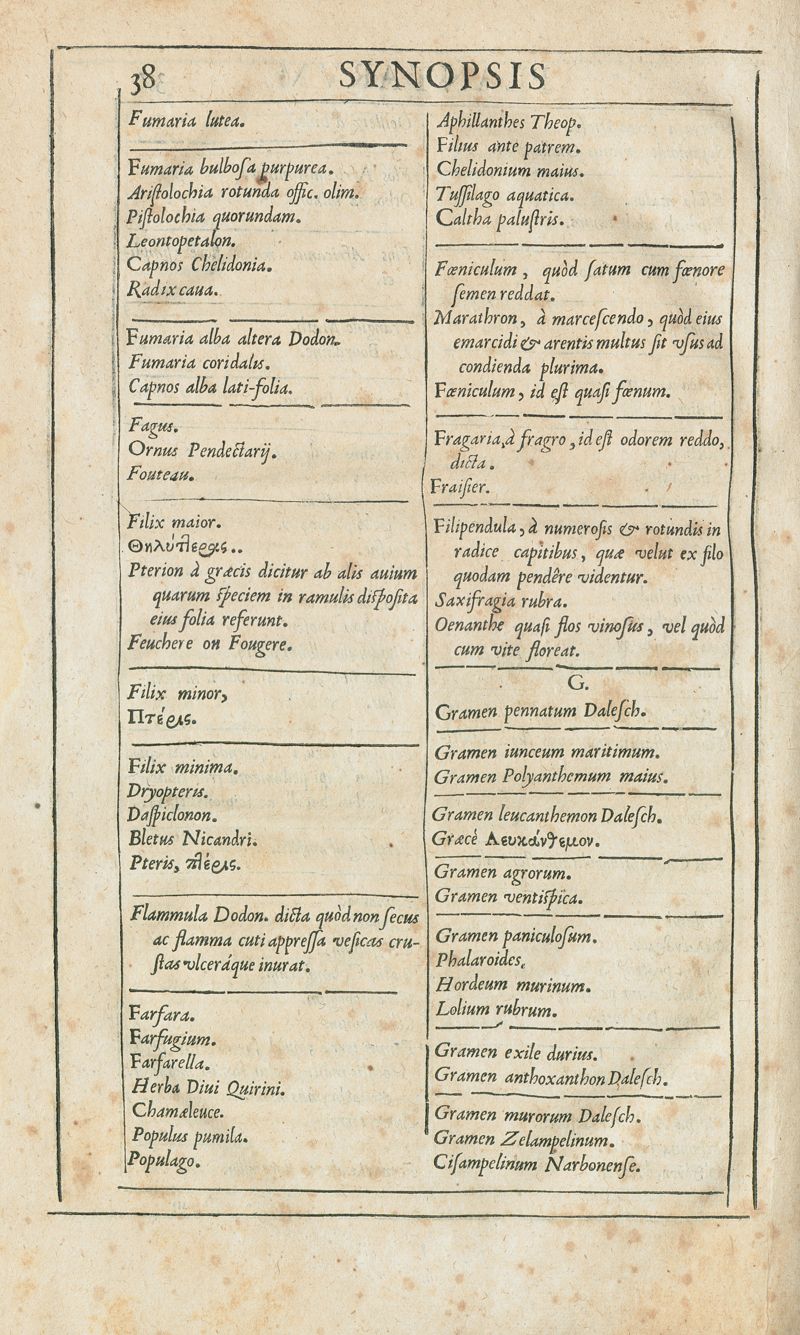 38
SYNOPSIS
Fumaria lutea.
Fumaria bulboſa purpurea.
Ariſtolochia rotunda offic. olim.
Piſtolochia quorundam.
Leontopetalon.
Capnos Chelidonia.
Radix caua.
Fumaria alba altera Dodon.
Fumaria coridalis.
Capnos alba lati-folia.
Fagus.
Ornus Pendectarij.
Fouteau.
Filix maior.
Θηλύπτερις..
Pterion à græcis dicitur ab alis auium
quarum ſpeciem in ramulis diſpoſita
eius folia referunt.
Feuchere ou Fougere.
Filix minor,
Πτέρις.
Filix minima.
Dryopteris.
Daſpiclonon.
Bletus Nicandri.
Pteris, πτέρις.
Flammula Dodon. dicta quòd non ſecus
ac flamma cuti appreſſa veſicas cru-
ſtas vlceráque inurat.
Farfara.
Farfugium.
Farfarella.
Herba Diui Quirini.
Chamæleuce.
Populus pumila.
Populago.
Aphillanthes Theop.
Filius ante patrem.
Chelidonium maius.
Tuſſilago aquatica.
Caltha paluſtris.
Fœniculum, quòd ſatum cum fœnore
ſemen reddat.
Marathron, à marceſcendo, quòd eius
emarcidi & arentis multus ſit vſus ad
condienda plurima.
Fœniculum, id eſt quaſi fœnum.
Fragaria, à fragro, id eſt odorem reddo,
dicta.
Fraiſier.
Filipendula, à numeroſis & rotundis in
radice capitibus, quæ velut ex filo
quodam pendêre videntur.
Saxifragia rubra.
Oenanthe quaſi flos vinoſus, vel quòd
cum vite floreat.
G.
Gramen pennatum Daleſch.
Gramen iunceum maritimum.
Gramen Polyanthemum maius.
Gramen leucanthemon Daleſch.
Græcé Λευκάνθεμον.
Gramen agrorum.
Gramen ventiſpica.
Gramen paniculoſum.
Phalaroides.
Hordeum murinum.
Lolium rubrum.
Gramen exile durius.
Gramen anthoxanthon Daleſch.
Gramen murorum Daleſch.
Gramen Zelampelinum.
Ciſampelinum Narbonenſe.